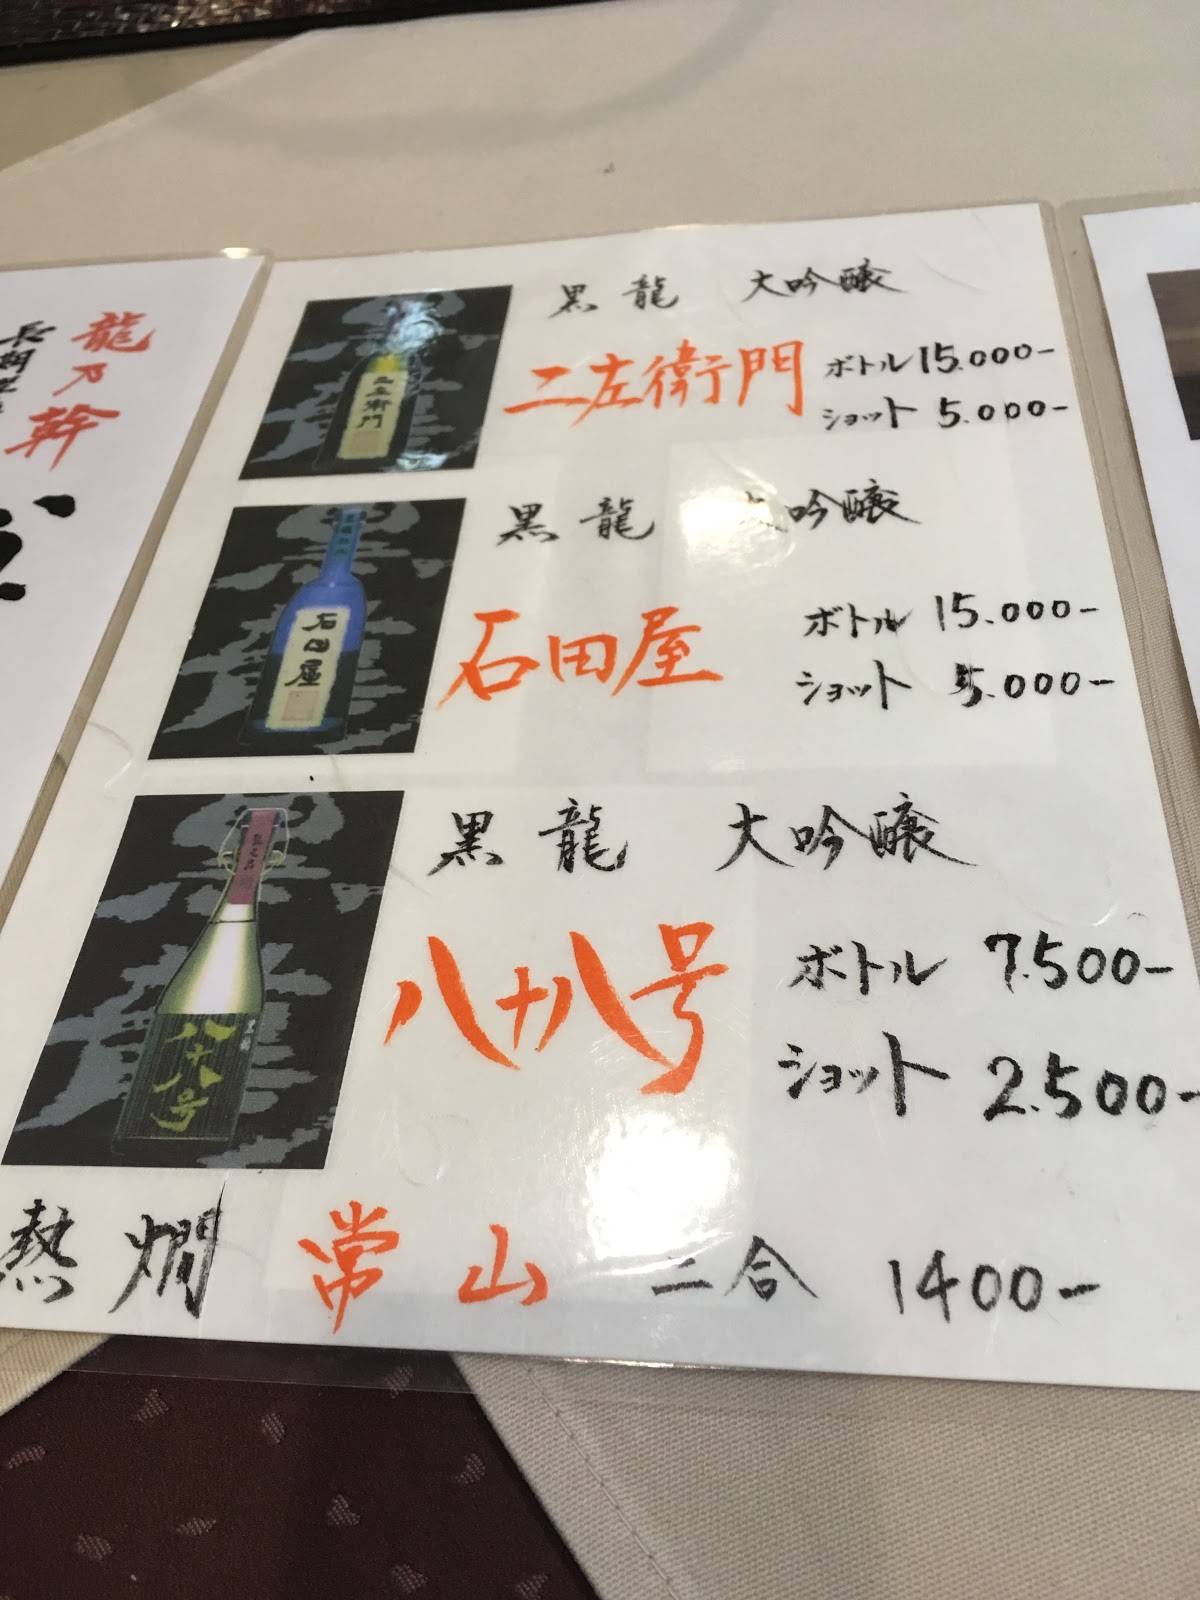 龍乃幹
長期
黒龍 大吟醸
二左衛門
ボトル 15.000-
ショット 5.000-
二左衛門
黒龍 大吟醸
石田屋
ボトル 15.000-
ショット 5.000-
石田屋
黒龍 大吟醸
八十八号
ボトル 7.500-
ショット 2.500-
八十八号
熱燗 常山 二合 1400-